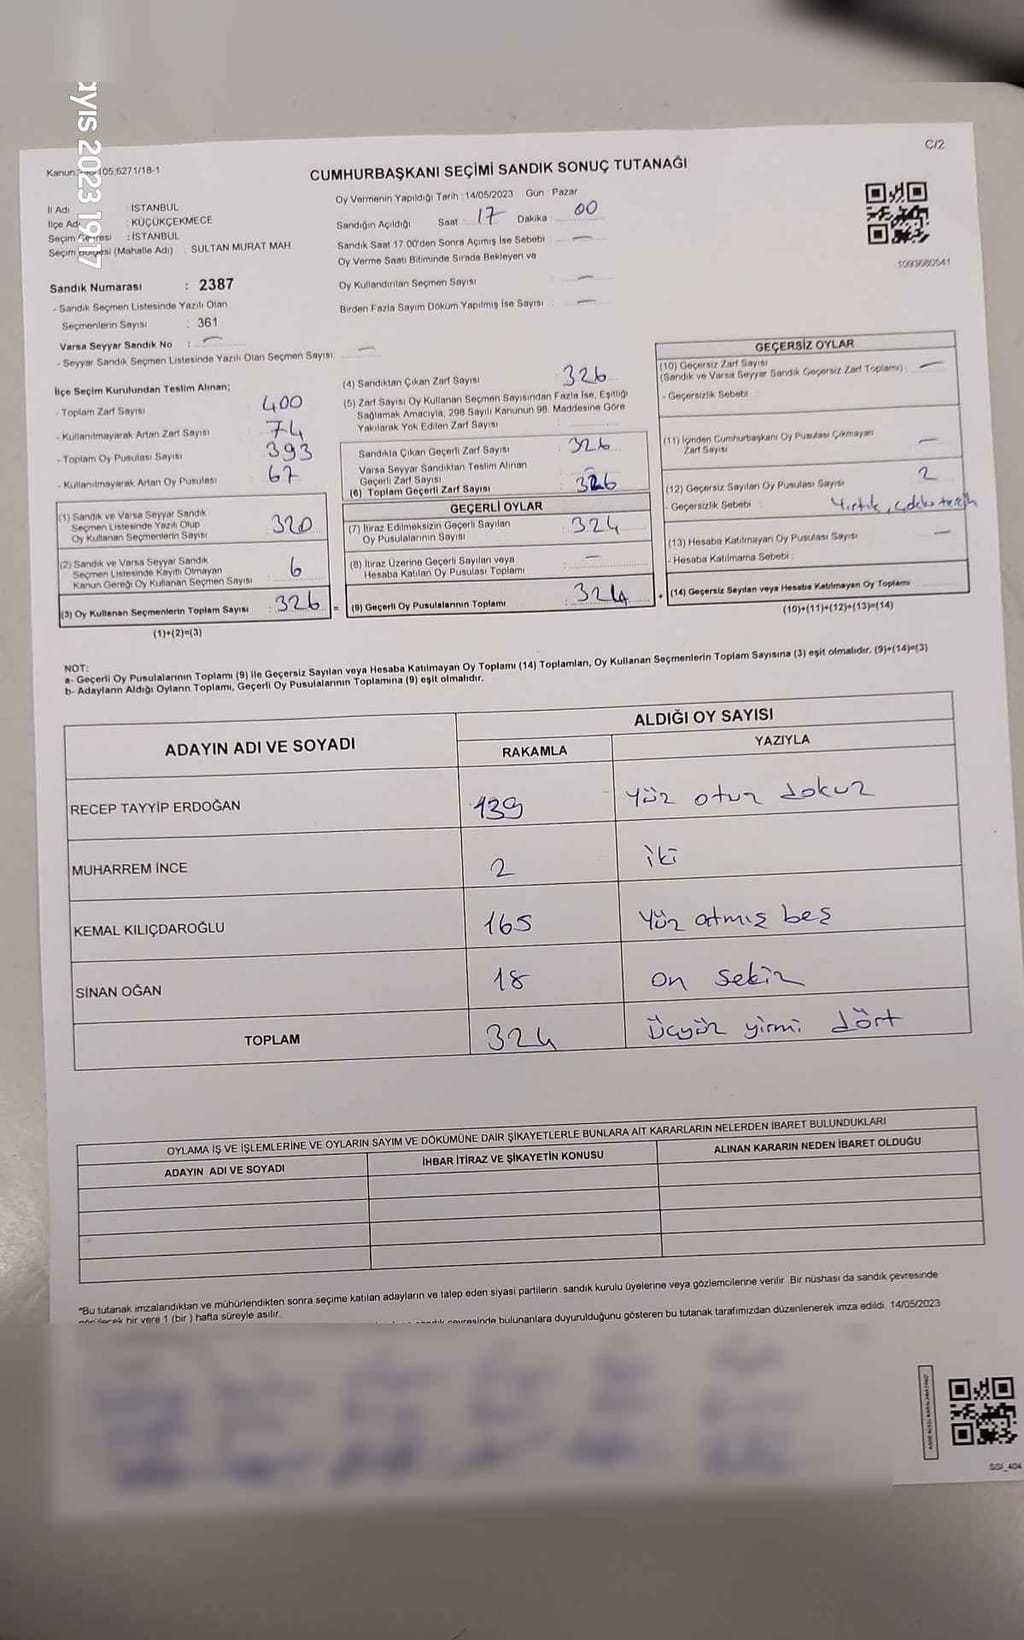 ayıs 2023 19:17
C/2
105,6271/18-1
CUMHURBAŞKANI SEÇİMİ SANDIK SONUÇ TUTANAĞI
İl Adı : İSTANBUL
İlçe Adı : KÜÇÜKÇEKMECE
Seçim Çevresi : İSTANBUL
Seçim Bölgesi (Mahalle Adı) : SULTAN MURAT MAH
Oy Vermenin Yapıldığı Tarih :14/05/2023 Gün : Pazar
Sandığın Açıldığı Saat : 17 Dakika : 00
Sandık Saat 17.00'den Sonra Açımış İse Sebebi : —
Oy Verme Saati Bitiminde Sırada Bekleyen ve
Oy Kullandırılan Seçmen Sayısı : —
Birden Fazla Sayım Döküm Yapılmış İse Sayısı : —
1093680541
Sandık Numarası : 2387
- Sandık Seçmen Listesinde Yazılı Olan
Seçmenlerin Sayısı : 361
Varsa Seyyar Sandık No : —
- Seyyar Sandık Seçmen Listesinde Yazılı Olan Seçmen Sayısı: —
İlçe Seçim Kurulundan Teslim Alınan;
- Toplam Zarf Sayısı : 400
- Kullanılmayarak Artan Zarf Sayısı : 74
- Toplam Oy Pusulası Sayısı : 393
- Kullanılmayarak Artan Oy Pusulası : 67
(1) Sandık ve Varsa Seyyar Sandık
Seçmen Listesinde Yazılı Olup
Oy Kullanan Seçmenlerin Sayısı : 320
(2) Sandık ve Varsa Seyyar Sandık
Seçmen Listesinde Kayıtlı Olmayan
Kanun Gereği Oy Kullanan Seçmen Sayısı : 6
(3) Oy Kullanan Seçmenlerin Toplam Sayısı : 326
(1)+(2)=(3)
(4) Sandıktan Çıkan Zarf Sayısı : 326
(5) Zarf Sayısı Oy Kullanan Seçmen Sayısından Fazla İse, Eşitliği
Sağlamak Amacıyla, 298 Sayılı Kanunun 98. Maddesine Göre
Yakılarak Yok Edilen Zarf Sayısı
Sandıkta Çıkan Geçerli Zarf Sayısı : 326
Varsa Seyyar Sandıktan Teslim Alınan
Geçerli Zarf Sayısı : —
(6) Toplam Geçerli Zarf Sayısı : 326
GEÇERLİ OYLAR
(7) İtiraz Edilmeksizin Geçerli Sayılan
Oy Pusulalarının Sayısı : 324
(8) İtiraz Üzerine Geçerli Sayılan veya
Hesaba Katılan Oy Pusulası Toplamı : —
= (9) Geçerli Oy Pusulalarının Toplamı : 324
GEÇERSİZ OYLAR
(10) Geçersiz Zarf Sayısı
(Sandık ve Varsa Seyyar Sandık Geçersiz Zarf Toplamı) : —
- Geçersizlik Sebebi :
(11) İçinden Cumhurbaşkanı Oy Pusulası Çıkmayan
Zarf Sayısı : —
(12) Geçersiz Sayılan Oy Pusulası Sayısı : 2
- Geçersizlik Sebebi : Yırtık,
(13) Hesaba Katılmayan Oy Pusulası Sayısı : —
- Hesaba Katılmama Sebebi :
+ (14) Geçersiz Sayılan veya Hesaba Katılmayan Oy Toplamı
(10)+(11)+(12)+(13)=(14)
NOT:
a- Geçerli Oy Pusulalarının Toplamı (9) ile Geçersiz Sayılan veya Hesaba Katılmayan Oy Toplamı (14) Toplamları, Oy Kullanan Seçmenlerin Toplam Sayısına (3) eşit olmalıdır. (9)+(14)=(3)
b- Adayların Aldığı Oyların Toplamı, Geçerli Oy Pusulalarının Toplamına (9) eşit olmalıdır.
ADAYIN ADI VE SOYADI ALDIĞI OY SAYISI
RAKAMLA YAZIYLA
RECEP TAYYİP ERDOĞAN 139 Yüz otuz dokuz
MUHARREM İNCE 2 iki
KEMAL KILIÇDAROĞLU 165 Yüz atmış beş
SİNAN OĞAN 18 on sekiz
TOPLAM 324 Üçyüz yirmi dört
OYLAMA İŞ VE İŞLEMLERİNE VE OYLARIN SAYIM VE DÖKÜMÜNE DAİR ŞİKAYETLERLE BUNLARA AİT KARARLARIN NELERDEN İBARET BULUNDUKLARI
ADAYIN ADI VE SOYADI İHBAR İTİRAZ VE ŞİKAYETİN KONUSU ALINAN KARARIN NEDEN İBARET OLDUĞU
*Bu tutanak imzalandıktan ve mühürlendikten sonra seçime katılan adayların ve talep eden siyasi partilerin sandık kurulu üyelerine veya gözlemcilerine verilir. Bir nüshası da sandık çevresinde
görülecek bir yere 1 (bir ) hafta süreyle asılır.
çevresinde bulunanlara duyurulduğunu gösteren bu tutanak tarafımızdan düzenlenerek imza edildi. 14/05/2023
SSI_404